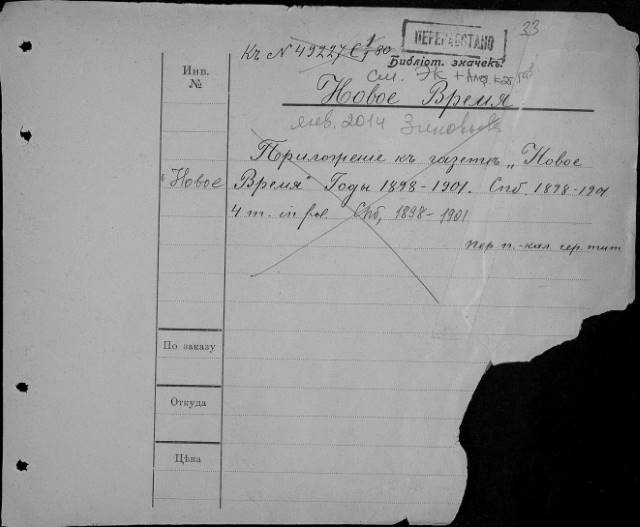 33
ПЕРЕРАБОТАНО
Къ N 49227 С 1/80
Библіот. значекъ.
см. ЭК +
Инв.
№
Новое Время
янв. 2014 Зиновьева
Приложение къ газетѣ „Новое
Новое
Время" Годы 1898-1901. Спб. 1898-1901
4 т. in fol. Спб, 1898-1901
пер. п.-кал. сер. тит
По заказу
Откуда
Цѣна